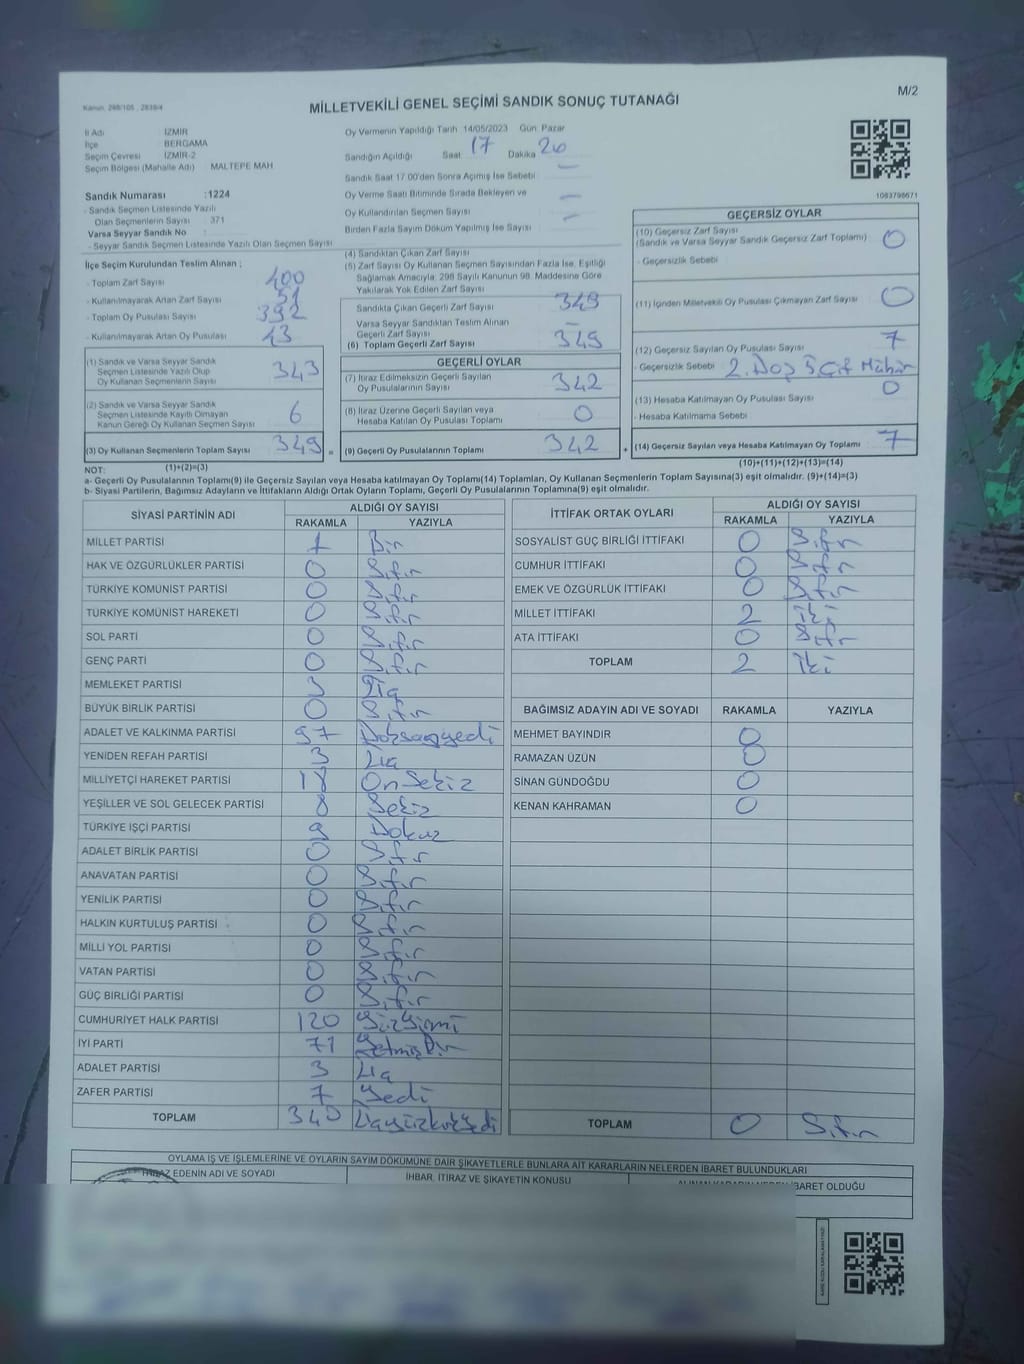 Kanun, 298/105 , 2839/4
MİLLETVEKİLİ GENEL SEÇİMİ SANDIK SONUÇ TUTANAĞI
M/2
İl Adı : İZMİR
İlçe : BERGAMA
Seçim Çevresi : İZMİR-2
Seçim Bölgesi (Mahalle Adı) : MALTEPE MAH
Sandık Numarası :1224
- Sandık Seçmen Listesinde Yazılı
Olan Seçmenlerin Sayısı : 371
Varsa Seyyar Sandık No :
- Seyyar Sandık Seçmen Listesinde Yazılı Olan Seçmen Sayısı
Oy Vermenin Yapıldığı Tarih 14/05/2023 Gün: Pazar
Sandığın Açıldığı Saat 17 Dakika 26
Sandık Saat 17.00'den Sonra Açılmış İse Sebebi —
Oy Verme Saati Bitiminde Sırada Bekleyen ve
Oy Kullandırılan Seçmen Sayısı —
Birden Fazla Sayım Döküm Yapılmış İse Sayısı —
1083798671
İlçe Seçim Kurulundan Teslim Alınan ;
- Toplam Zarf Sayısı : 400
- Kullanılmayarak Artan Zarf Sayısı : 51
- Toplam Oy Pusulası Sayısı : 392
- Kullanılmayarak Artan Oy Pusulası : 43
(1) Sandık ve Varsa Seyyar Sandık
Seçmen Listesinde Yazılı Olup
Oy Kullanan Seçmenlerin Sayısı : 343
(2) Sandık ve Varsa Seyyar Sandık
Seçmen Listesinde Kayıtlı Olmayan
Kanun Gereği Oy Kullanan Seçmen Sayısı : 6
(3) Oy Kullanan Seçmenlerin Toplam Sayısı : 349
(4) Sandıktan Çıkan Zarf Sayısı
(5) Zarf Sayısı Oy Kullanan Seçmen Sayısından Fazla İse, Eşitliği
Sağlamak Amacıyla, 298 Sayılı Kanunun 98. Maddesine Göre
Yakılarak Yok Edilen Zarf Sayısı :
Sandıkta Çıkan Geçerli Zarf Sayısı : 349
Varsa Seyyar Sandıktan Teslim Alınan
Geçerli Zarf Sayısı : —
(6) Toplam Geçerli Zarf Sayısı : 349
GEÇERLİ OYLAR
(7) İtiraz Edilmeksizin Geçerli Sayılan
Oy Pusulalarının Sayısı : 342
(8) İtiraz Üzerine Geçerli Sayılan veya
Hesaba Katılan Oy Pusulası Toplamı : 0
= (9) Geçerli Oy Pusulalarının Toplamı : 342 +
GEÇERSİZ OYLAR
(10) Geçersiz Zarf Sayısı
(Sandık ve Varsa Seyyar Sandık Geçersiz Zarf Toplamı) : 0
- Geçersizlik Sebebi :
(11) İçinden Milletvekili Oy Pusulası Çıkmayan Zarf Sayısı : 0
(12) Geçersiz Sayılan Oy Pusulası Sayısı : 7
- Geçersizlik Sebebi : 2. Boş 5 Çift Mühür
(13) Hesaba Katılmayan Oy Pusulası Sayısı : 0
- Hesaba Katılmama Sebebi :
(14) Geçersiz Sayılan veya Hesaba Katılmayan Oy Toplamı : 7
NOT: (1)+(2)=(3)
(10)+(11)+(12)+(13)=(14)
a- Geçerli Oy Pusulalarının Toplamı(9) ile Geçersiz Sayılan veya Hesaba katılmayan Oy Toplamı(14) Toplamları, Oy Kullanan Seçmenlerin Toplam Sayısına(3) eşit olmalıdır. (9)+(14)=(3)
b- Siyasi Partilerin, Bağımsız Adayların ve İttifakların Aldığı Ortak Oyların Toplamı, Geçerli Oy Pusulalarının Toplamına(9) eşit olmalıdır.
SİYASİ PARTİNİN ADI ALDIĞI OY SAYISI
RAKAMLA YAZIYLA
MİLLET PARTİSİ 1 Bir
HAK VE ÖZGÜRLÜKLER PARTİSİ 0 Sıfır
TÜRKİYE KOMÜNİST PARTİSİ 0 Sıfır
TÜRKİYE KOMÜNİST HAREKETİ 0 Sıfır
SOL PARTİ 0 Sıfır
GENÇ PARTİ 0 Sıfır
MEMLEKET PARTİSİ 3 Üç
BÜYÜK BİRLİK PARTİSİ 0 Sıfır
ADALET VE KALKINMA PARTİSİ 97 Doksanyedi
YENİDEN REFAH PARTİSİ 3 Üç
MİLLİYETÇİ HAREKET PARTİSİ 18 OnSekiz
YEŞİLLER VE SOL GELECEK PARTİSİ 8 Sekiz
TÜRKİYE İŞÇİ PARTİSİ 9 Dokuz
ADALET BİRLİK PARTİSİ 0 Sıfır
ANAVATAN PARTİSİ 0 Sıfır
YENİLİK PARTİSİ 0 Sıfır
HALKIN KURTULUŞ PARTİSİ 0 Sıfır
MİLLİ YOL PARTİSİ 0 Sıfır
VATAN PARTİSİ 0 Sıfır
GÜÇ BİRLİĞİ PARTİSİ 0 Sıfır
CUMHURİYET HALK PARTİSİ 120 YüzYirmi
İYİ PARTİ 71 YetmişBir
ADALET PARTİSİ 3 Üç
ZAFER PARTİSİ 7 Yedi
TOPLAM 340
İTTİFAK ORTAK OYLARI ALDIĞI OY SAYISI
RAKAMLA YAZIYLA
SOSYALİST GÜÇ BİRLİĞİ İTTİFAKI 0 Sıfır
CUMHUR İTTİFAKI 0 Sıfır
EMEK VE ÖZGÜRLÜK İTTİFAKI 0 Sıfır
MİLLET İTTİFAKI 2 İki
ATA İTTİFAKI 0 Sıfır
TOPLAM 2 İki
BAĞIMSIZ ADAYIN ADI VE SOYADI RAKAMLA YAZIYLA
MEHMET BAYINDIR 0
RAMAZAN ÜZÜN 0
SİNAN GÜNDOĞDU 0
KENAN KAHRAMAN 0
TOPLAM 0 Sıfır
OYLAMA İŞ VE İŞLEMLERİNE VE OYLARIN SAYIM DÖKÜMÜNE DAİR ŞİKAYETLERLE BUNLARA AİT KARARLARIN NELERDEN İBARET BULUNDUKLARI
İTİRAZ EDENİN ADI VE SOYADI
İHBAR, İTİRAZ VE ŞİKAYETİN KONUSU
İBARET OLDUĞU